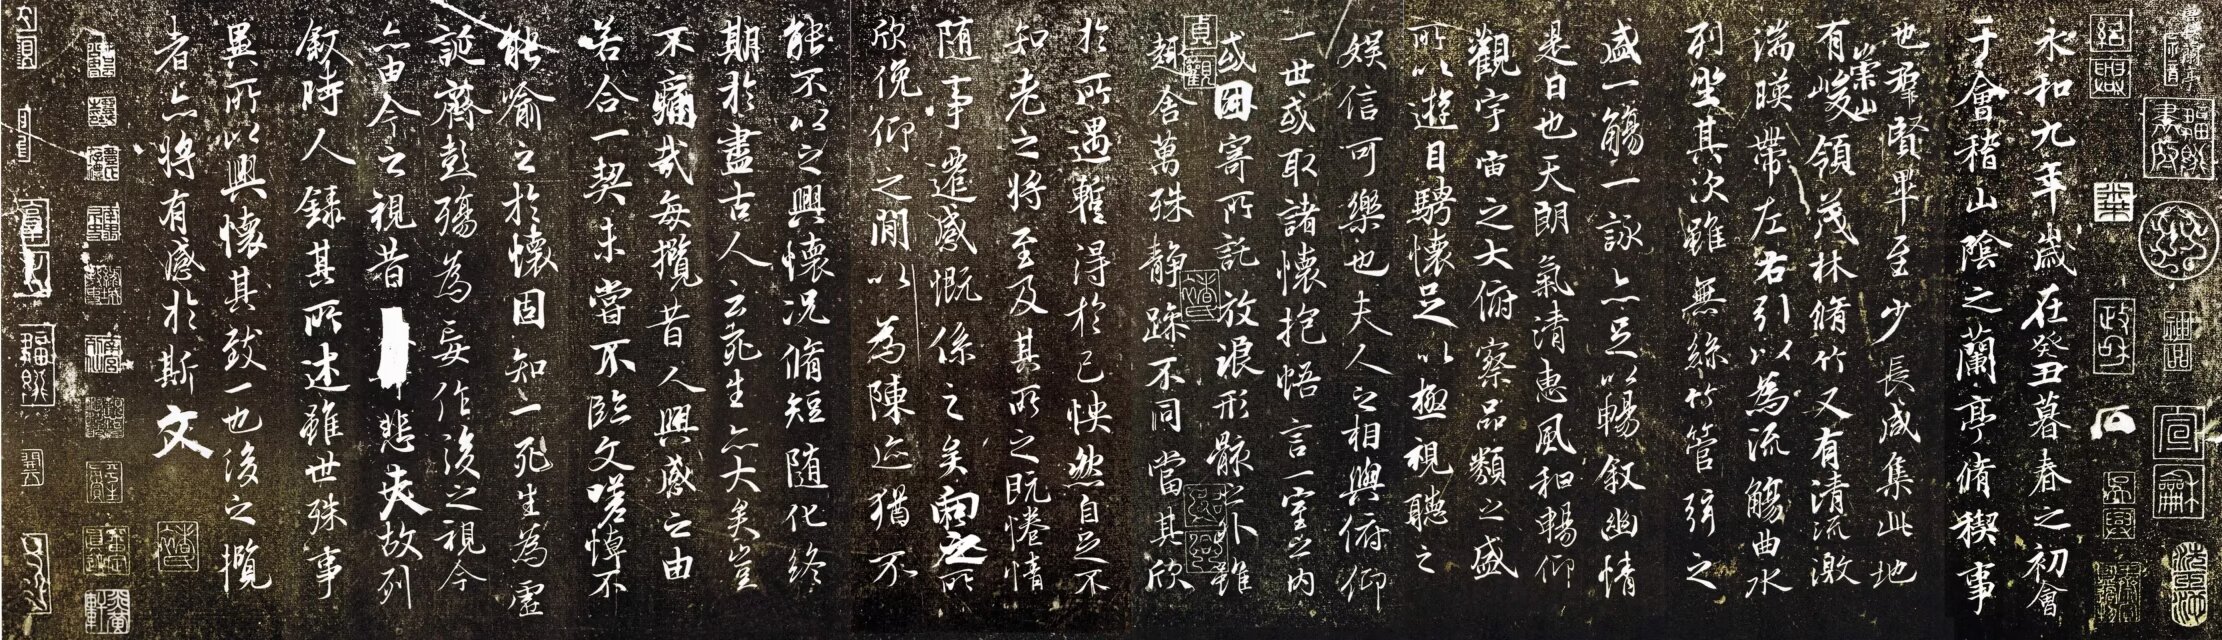 紹興
政和
宣龢
永和九年歲在癸丑暮春之初會
于會稽山陰之蘭亭脩稧事
也羣賢畢至少長咸集此地
有崇山峻領茂林脩竹又有清流激
湍暎帶左右引以為流觴曲水
列坐其次雖無絲竹管弦之
盛一觴一詠亦足以暢叙幽情
是日也天朗氣清惠風和暢仰
觀宇宙之大俯察品類之盛
所以遊目騁懷足以極視聽之
娛信可樂也夫人之相與俯仰
一世或取諸懷抱悟言一室之內
或因寄所託放浪形骸之外雖
貞觀
趣舍萬殊靜躁不同當其欣
於所遇蹔得於己怏然自足不
知老之將至及其所之既惓情
随事遷感慨係之矣向之所
欣俛仰之閒以為陳迹猶不
能不以之興懷況脩短随化終
期於盡古人云死生亦大矣豈
不痛哉每攬昔人興感之由
若合一契未嘗不臨文嗟悼不
能喻之於懷固知一死生為虛
誕齊彭殤為妄作後之視今
亦由今之視昔悲夫故列
叙時人錄其所述雖世殊事
異所以興懷其致一也後之攬
者亦將有感於斯文